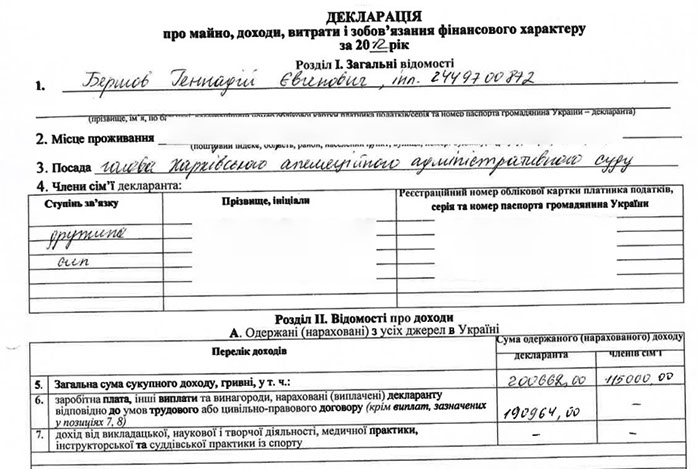 ДЕКЛАРАЦІЯ
про майно, доходи, витрати і зобов'язання фінансового характеру
за 2012 рік
Розділ I. Загальні відомості
1. Бершов Геннадій Євгенович, іпн. 2449700872
2. Місце проживання
3. Посада голова Харківського апеляційного адміністративного суду
4. Члени сім'ї декларанта:
Ступінь зв'язку
Прізвище, ініціали
Реєстраційний номер облікової картки платника податків,
серія та номер паспорта громадянина України
дружина
син
Розділ II. Відомості про доходи
А. Одержані (нараховані) з усіх джерел в Україні
Перелік доходів
Сума одержаного (нарахованого) доходу
декларанта
членів сім'ї
5. Загальна сума сукупного доходу, гривні, у т. ч.: 200668,00 115000,00
6. заробітна плата, інші виплати та винагороди, нараховані (виплачені) декларанту
відповідно до умов трудового або цивільно-правового договору (крім виплат, зазначених
у позиціях 7, 8)
190964,00 –
7. дохід від викладацької, наукової і творчої діяльності, медичної практики,
інструкторської та суддівської практики із спорту
– –